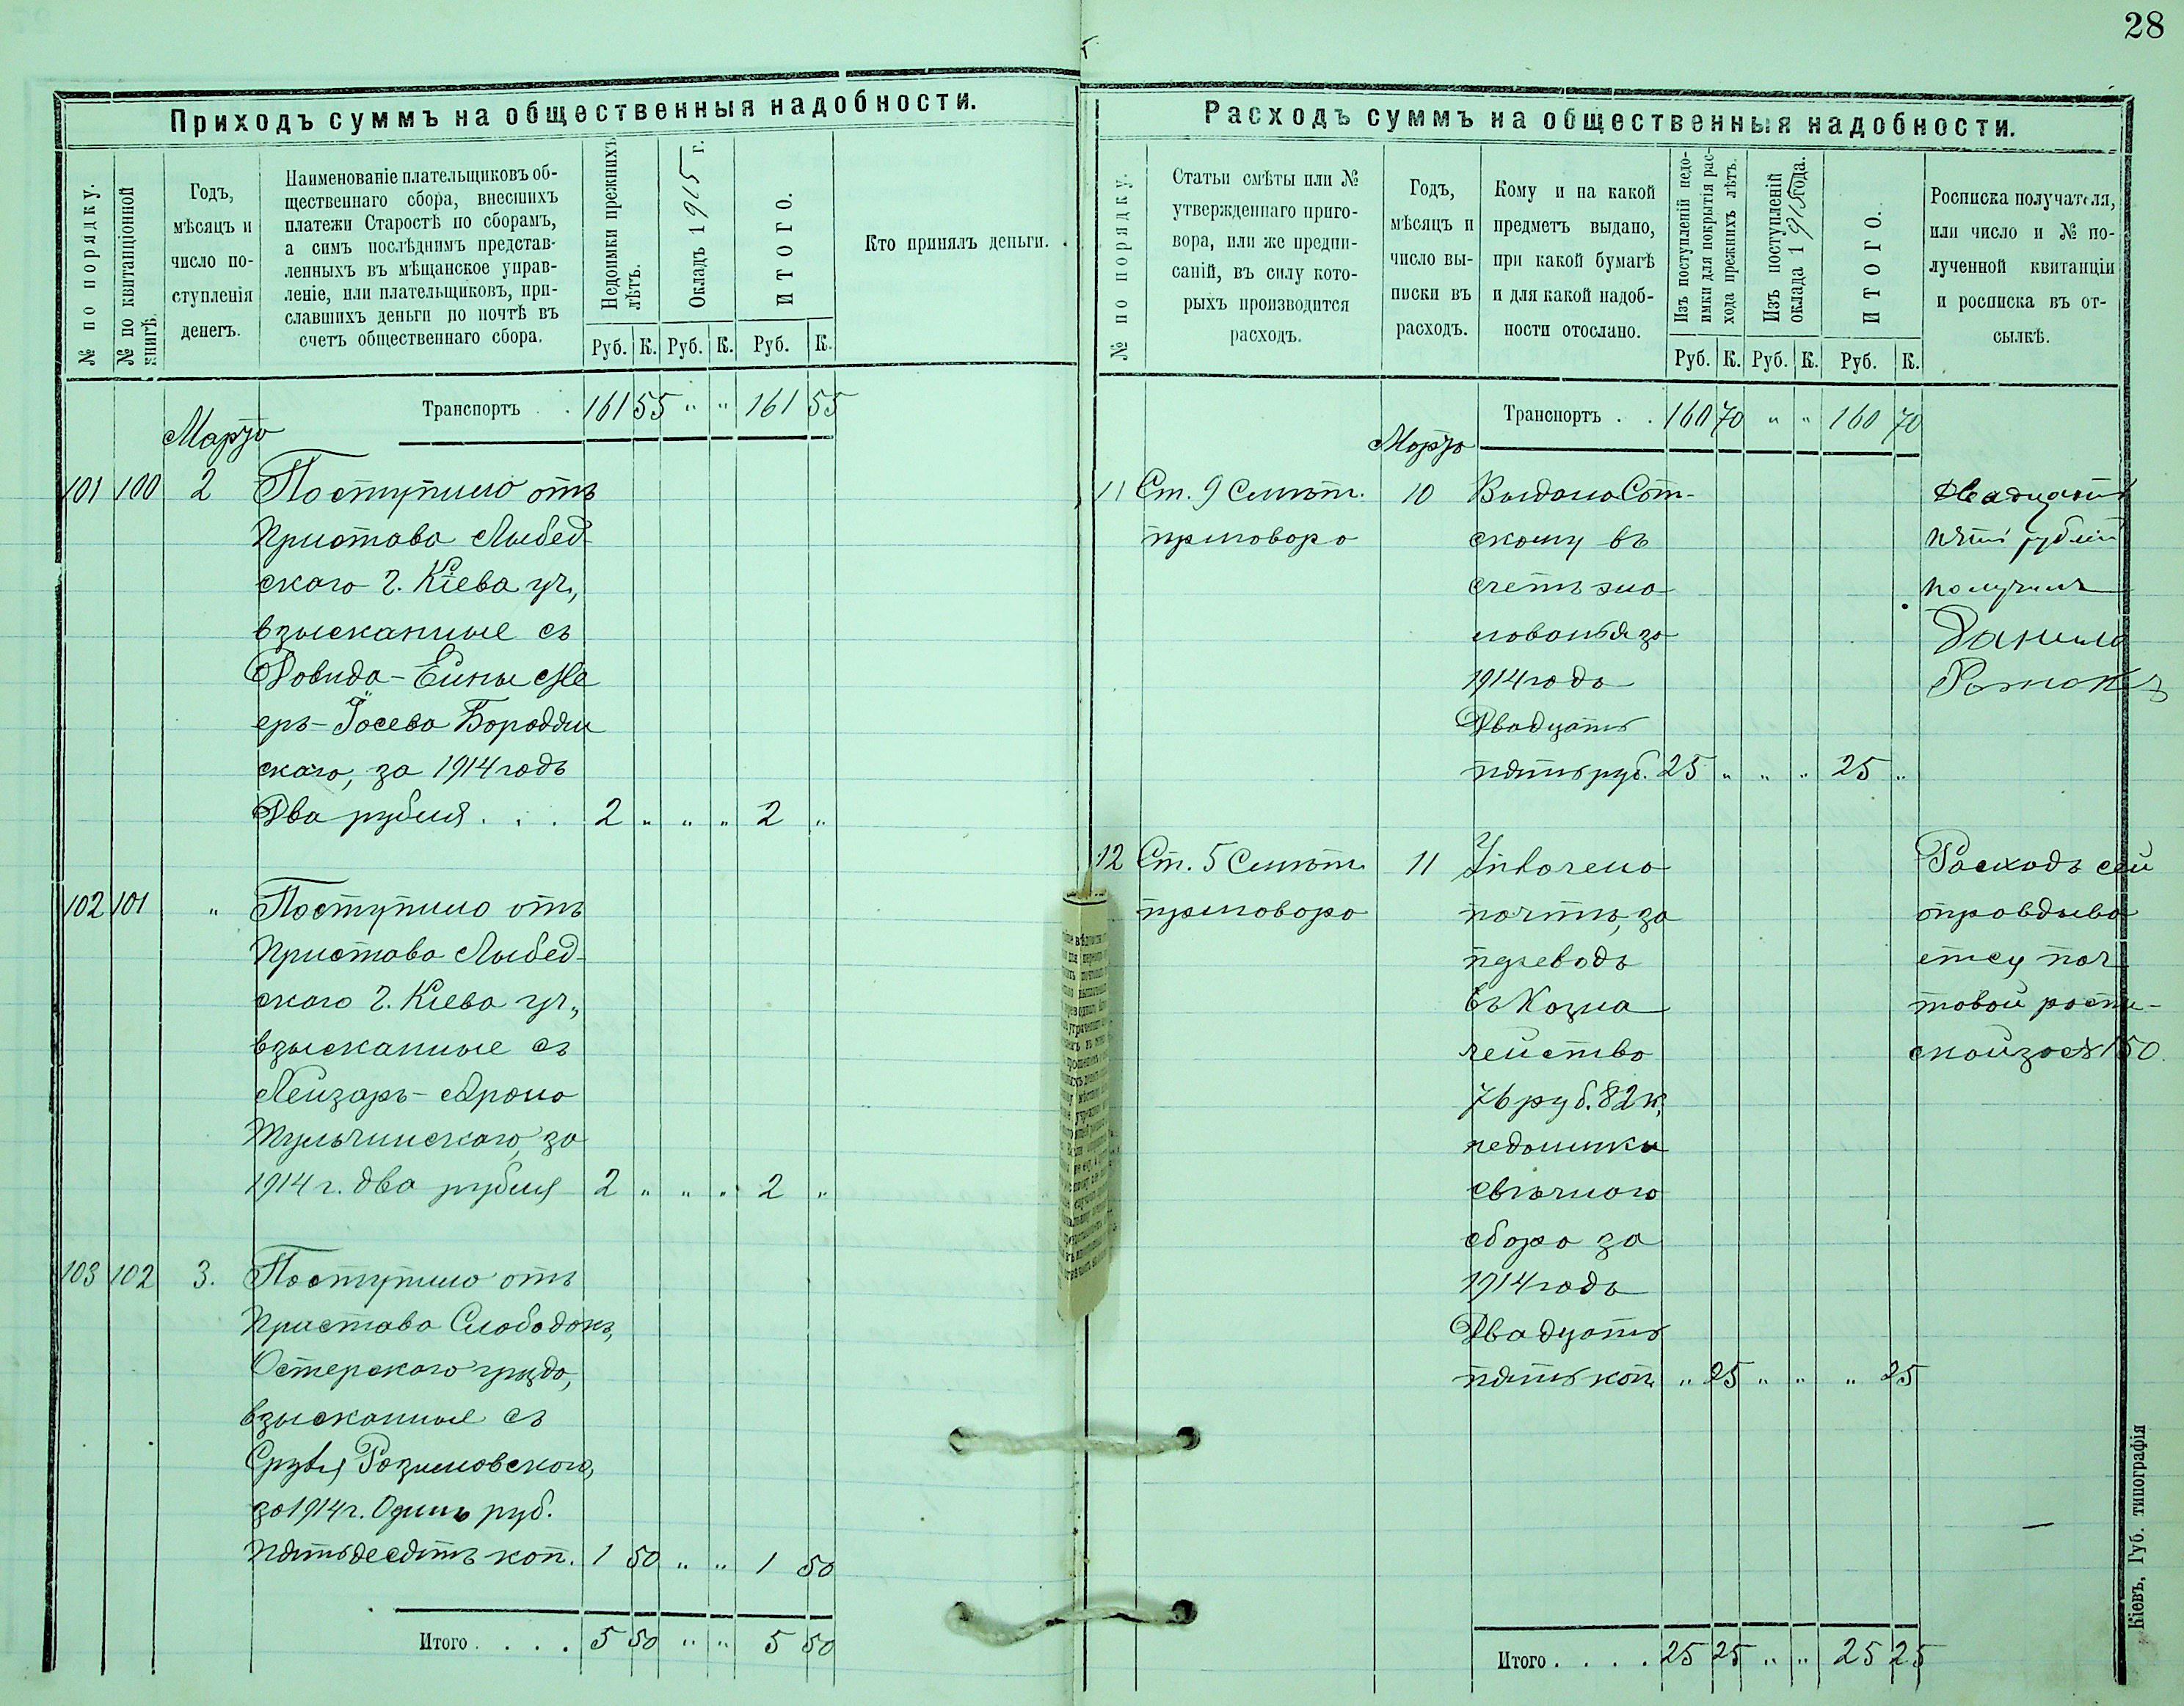 28
Приходъ суммъ на общественныя надобности.
№ по порядку.
№ по квитанціонной книгѣ.
Годъ,
мѣсяцъ и
число по-
ступленія
денегъ.
Наименованіе плательщиковъ об-
щественнаго сбора, внесшихъ
платежи Старостѣ по сборамъ,
а симъ послѣднимъ представ-
ленныхъ въ мѣщанское управ-
леніе, или плательщиковъ, при-
славшихъ деньги по почтѣ въ
счетъ общественнаго сбора.
Недоимки прежнихъ
лѣтъ.
Окладъ 1915 г.
ИТОГО.
Кто принялъ деньги.
Руб. К. Руб. К. Руб. К.
Транспортъ . . 161 55 " " 161 55
Марта
101 100 2 Поступило отъ
Пристава Лыбед-
скаго г. Кіева уч.,
взысканные съ
Довида-Ейны Ме
еръ-Іосева Бородян
скаго, за 1914 годъ
Два рубля . . . 2 " " " 2 "
102 101 " Поступило отъ
Пристава Лыбед-
скаго г. Кіева уч.,
взысканные съ
Лейзаръ-Арона
Тульчинскаго, за
1914 г. два рубля 2 " " " 2 "
103 102 3. Поступило отъ
Пристава Слободокъ,
Остерскаго уѣзда,
взысканные съ
Сруля Розумовскаго,
за 1914 г. Одинъ руб.
пятьдесятъ коп. 1 50 " " 1 50
Итого . . . . 5 50 " " 5 50
Расходъ суммъ на общественныя надобности.
№ по порядку.
Статьи смѣты или №
утвержденнаго приго-
вора, или же предпи-
саній, въ силу кото-
рыхъ производится
расходъ.
Годъ,
мѣсяцъ и
число вы-
писки въ
расходъ.
Кому и на какой
предметъ выдано,
при какой бумагѣ
и для какой надоб-
ности отослано.
Изъ поступленій недо-
имки для покрытія рас-
хода прежнихъ лѣтъ.
Изъ поступленій
оклада 1915 года.
ИТОГО.
Росписка получателя,
или число и № по-
лученной квитанціи
и росписка въ от-
сылкѣ.
Руб. К. Руб. К. Руб. К.
Транспортъ . . 160 70 " " 160 70
Марта
11 Ст. 9 Смѣтн. 10 Выдано Сот- Двадцать
приговора скому въ пять рублей
счетъ жа- получилъ
лованья за Данило
1914 годъ
Двадцать
пять руб. 25 " " " 25 "
12 Ст. 5 Смѣтн. 11 Уплочено Расходъ сей
приговора почтѣ, за оправдыва
переводъ ется поч
въ Казна товой роспи-
чейство ской за № 150.
76 руб. 82 к.
недоимки
свѣчного
сбора за
1914 годъ
Двадцать
пять коп. " 25 " " " 25
Итого . . . . 25 25 " " 25 25
Кіевъ, Губ. типографія